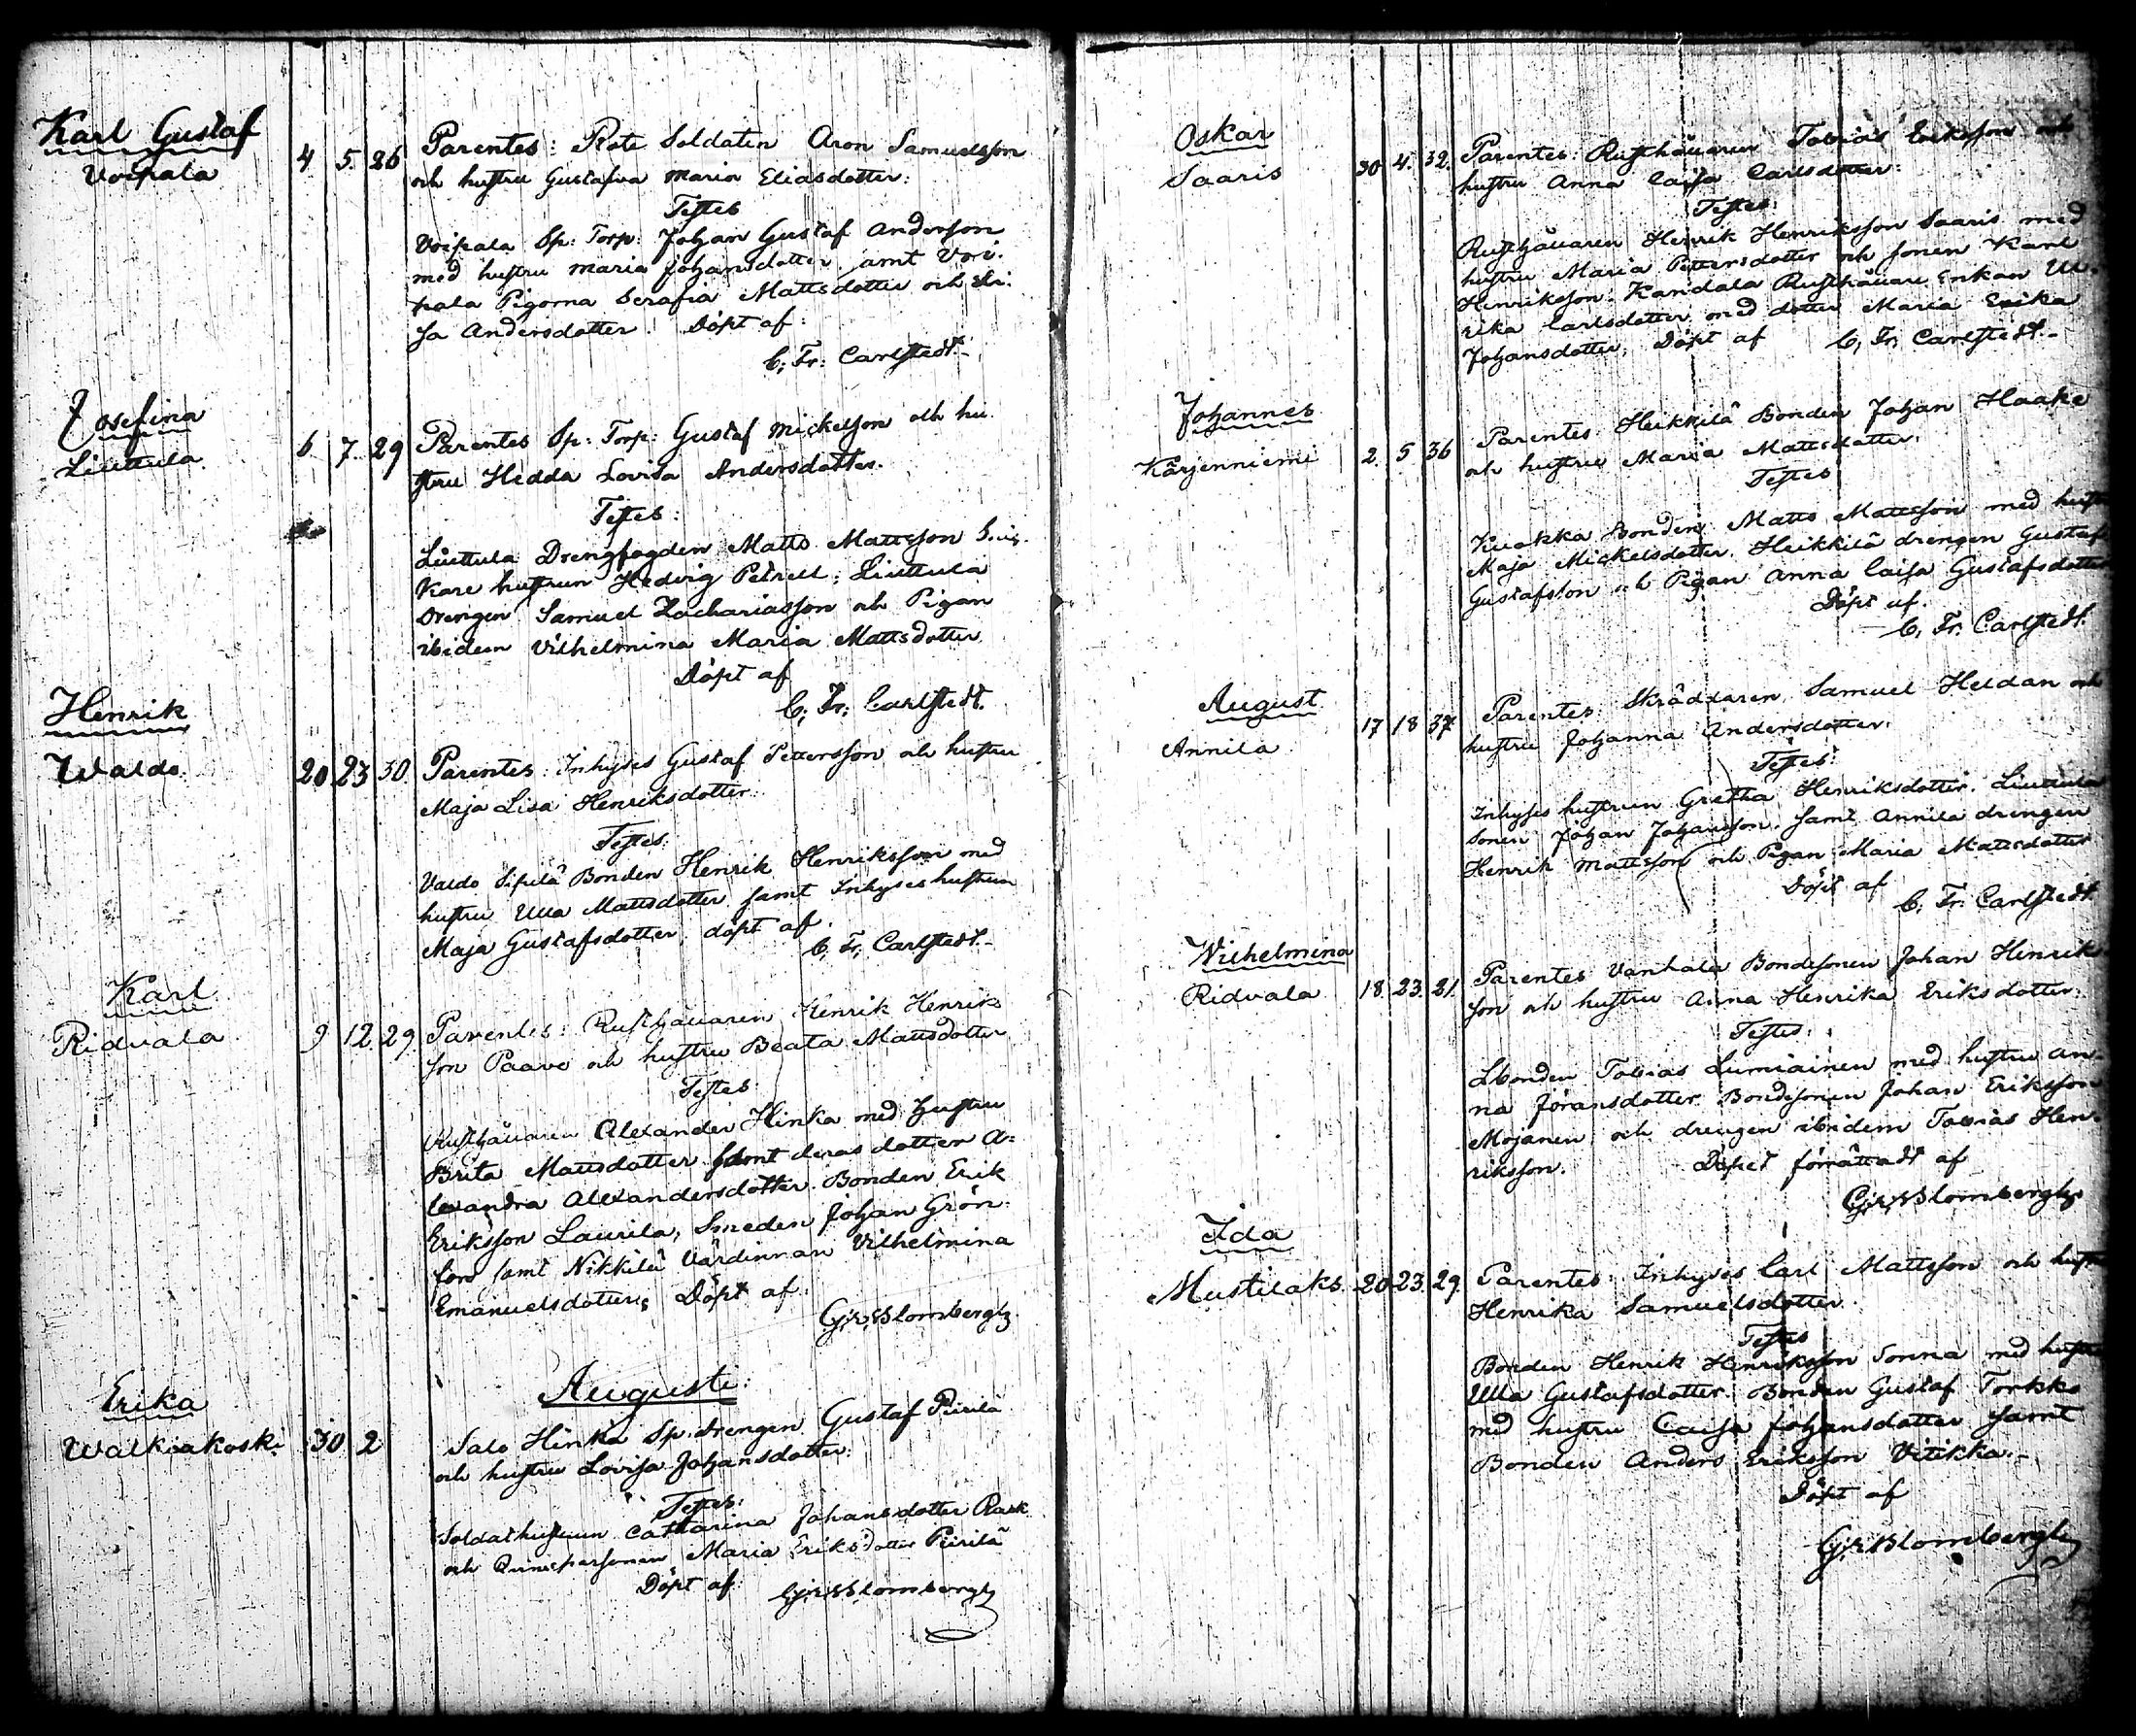 Karl Gustaf
Voipala
4 5. 26
Parentes: Rote Soldaten Aron Samuelsson
och hustru Gustafva Maria Eliasdotter:
Testes
Voipala Sp: Torp: Johan Gustaf Andersson
med hustru Maria Johansdotter samt Voi-
pala Pigorna Serafia Mattsdotter och Li-
sa Andersdotter. Döpt af:
C. Fr. Carlstedt.
Josefina
Liuttula
6. 7. 29
Parentes Sp: Torp: Gustaf Mickelsson och hu
stru Hedda Lovisa Andersdotter.
Testes:
Liuttula Drengfogden Matts Mattsson
Kare hustrun Hedvig Petrell; Liuttula
Drengen Samuel Zachariasson och Pigan
ibidem Vilhelmina Maria Mattsdotter
Döpt af
C. Fr. Carlstedt.
Henrik
Waldo
20 23 30
Parentes: Inhyses Gustaf Pettersson och hustru
Maja Lisa Henriksdotter
Testes:
Valdo Sipilä Bonden Henrik Henriksson med
hustru Ulla Mattsdotter samt Inhyses hustrun
Maja Gustafsdotter. döpt af.
C. Fr. Carlstedt.
Karl
Ridvala
9 12. 29.
Parentes: Rusthållaren Henrik Henriks
son Paavo och hustru Beata Mattsdotter
Testes
Rusthållaren Alexander Hinka med Hustru
Brita Mattsdotter samt deras dotter A=
lexandra Alexandersdotter. Bonden Erik
Eriksson Laurila, Smeden Johan Grön-
fors samt Nikkilä Värdinnan Vilhelmina
Emanuelsdotter; Döpt af.
G. R. Blombergh
Augusti:
Erika
Walkiakoski
30 2
Salo Hinka Sp: drengen Gustaf Piirilä
och hustru Lovisa Johansdotter.
Testes:
Soldathustrun Catharina Johansdotter Rask
och Qvinspersonen Maria Eriksdotter Piirilä
Döpt af G. R. Blombergh
Oskar
Saaris
30 4. 32.
Parentes: Rusthållaren Tobias Eriksson och
hustru Anna Caisa Carlsdotter.
Testes:
Rusthållaren Henrik Henriksson Saaris med
hustru Maria Pettersdotter och sonen Karl
Henriksson: Kandala Rusthållare Enkan Ul-
rika Carlsdotter med dotter Maria Erika
Johansdotter; Döpt af C. Fr. Carlstedt.
Johannes
Kärjenniemi
2. 5 36
Parentes Heikkilä Bonden Johan Haake
och hustru Maria Mattsdotter.
Testes
Kuokka Bonden Matts Mattsson med hustru
Maja Mickelsdotter. Heikkilä drengen Gustaf
Gustafsson och Pigan Anna Caisa Gustafsdotter
Döpt af.
C. Fr. Carlstedt.
August
Annila
17 18 37
Parentes: Skräddaren Samuel Heldan och
hustru Johanna Andersdotter.
Testes:
Inhyses hustrun Gretha Henriksdotter. Liuttula
Sonen Johan Johansson. samt Annila drengen
Henrik Mattsson och Pigan Maria Mattsdotter
Döpt af
C. Fr. Carlstedt
Wilhelmina
Ridvala
18. 23. 21.
Parentes Vanhala Bondesonen Johan Henrik
son och hustru Anna Henrika Eriksdotter:
Testes:
Lbonden Tobias Lumiainen med hustru An-
na Jöransdotter Bondesonen Johan Eriksson
Mojanen och drengen ibidem Tobias Hen-
riksson. Döpet förrättadt af
G. R. Blombergh
Ida
Mustilaks
20 23. 29.
Parentes: Inhyses Carl Mattsson och hustru
Henrika Samuelsdotter.
Testes
Bonden Henrik Henriksson Sonna med hustru
Ulla Gustafsdotter. Bonden Gustaf Torkko
med hustru Caisa Johansdotter samt
Bonden Anders Eriksson Vitikka.
Döpt af
G. R. Blombergh